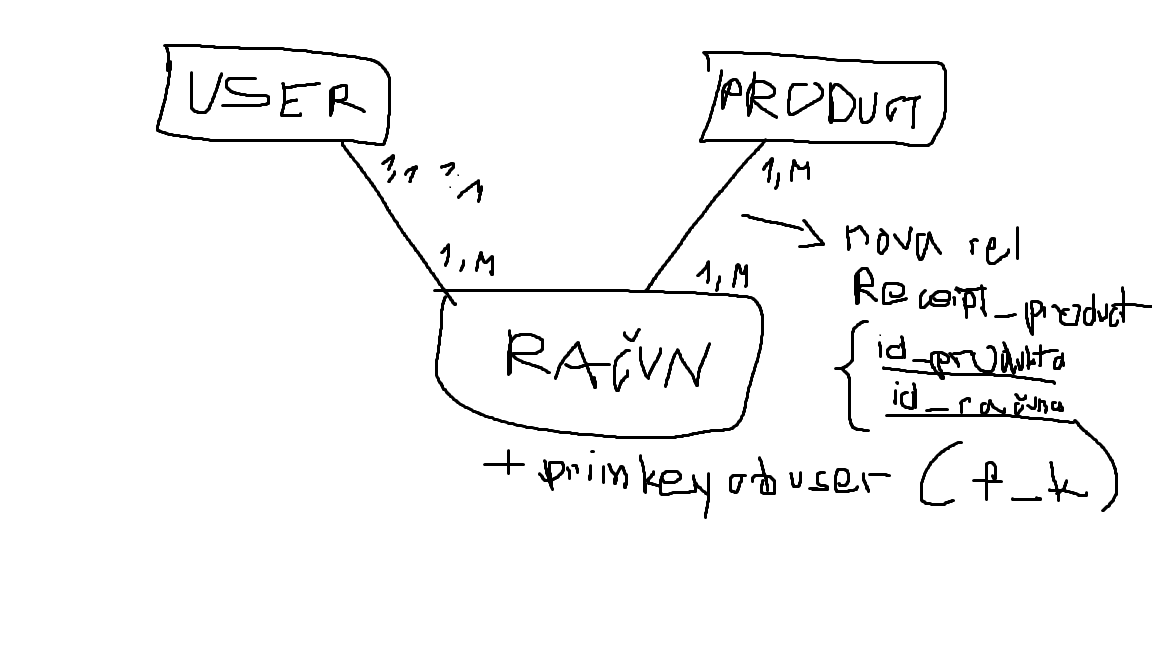 USER
PRODUCT
1,1 ?,1
1,M
1,M
1,M
nova rel
Receipt_product
id_produkta
id_računa
RAČUN
+ prim key ob user (f_k)